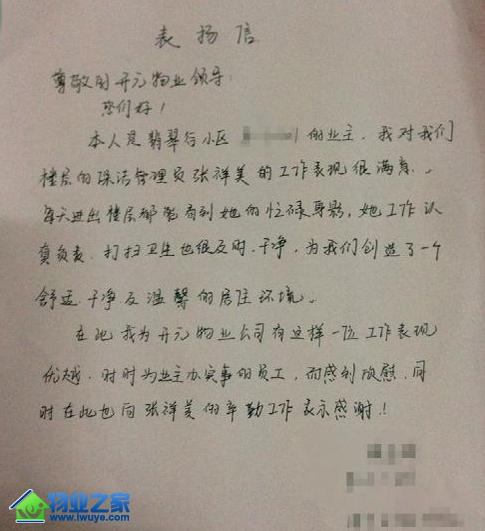 表扬信
尊敬的开元物业领导:
您们好!
本人是翡翠行小区 的业主,我对我们
楼层的保洁管理员张祥美的工作表现很满意。
每天进出楼层都能看到她的忙碌身影,她工作认
真负责.打扫卫生也很及时.干净,为我们创造了一个
舒适.干净及温馨的居住环境。
在此我为开元物业公司有这样一位工作表现
优越.时时为业主办实事的员工,而感到欣慰.同
时在此也向张祥美的辛勤工作表示感谢!
物业之家
www.iwuye.com